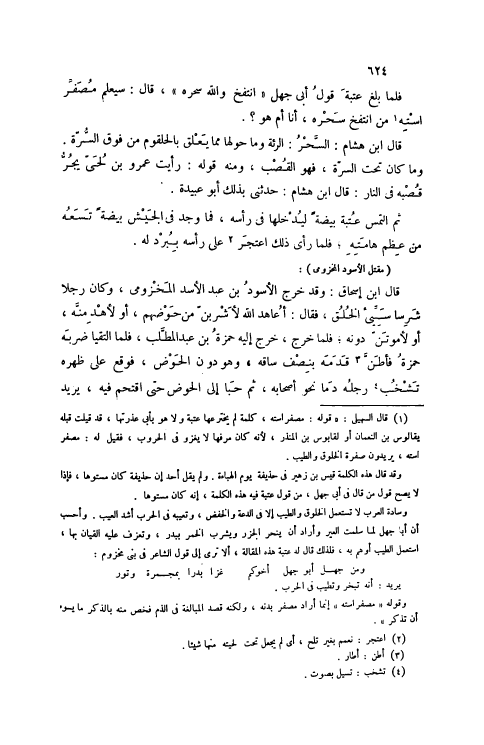 ٦٢٤
فلما بلغ عتبةَ قولُ أبى جهل « انتفخ والله سحره » ، قال : سيعلم مُصَفِّرُ
اسْتِهِ ١ من انتفخ سَحْره ، أنا أم هو ؟ .
قال ابن هشام : السَّحْرُ : الرئة وما حولها مما يَعْلق بالحلقوم من فوق السُّرّة .
وما كان تحت السرّة ، فهو القُصْب ، ومنه قوله : رأيت عمرو بن لُحَىّ يجُرُّ
قُصْبه فى النار : قال ابن هشام : حدثنى بذلك أبو عبيدة .
ثم التمس عُتبة بيضةً ليُدْخلها فى رأسه ، فما وجد فى الجَيْش بيضةً تَسَعُه
من عِظم هامَتِهِ ؛ فلما رأى ذلك اعتجر ٢ على رأسه بِبُرْد له .
( مقتل الأسود المخزومى ) :
قال ابن إسحاق : وقد خرج الأسودُ بن عبد الأسد المَخْزومى ، وكان رجلا
شَرِسا سيِّئَ الخُلُق ، فقال : أُعاهد الله لأشْربنّ من حَوْضهم ، أو لأهْدِمنَّه ،
أو لأموتنّ دونه ؛ فلما خرج ، خرج إليه حمزةُ بن عبد المطَّلب ، فلما التقيا ضربَه
حمزةُ فأطَنَّ ٣ قَدمَه بنِصْف ساقه ، وهو دون الحَوْض ، فوقع على ظهره
تَشْخُب ٤ رجلُه دَمًا نحو أصحابه ، ثم حَبَا إلى الحوض حتى اقتحم فيه ، يريد
(١) قال السهيل : « قوله : مصفر استه ، كلمة لم يخترعها عتبة ولا هو بأبى عذرتها ، قد قيلت قبله
يقالوس بن النعمان أو لقابوس بن المنذر ، لأنه كان مرفها لا يغزو فى الحروب ، فقيل له : مصفر
استه ، يريدون صفرة الخلوق والطيب .
وقد قال هذه الكلمة قيس بن زهير فى حذيفة يوم الهباءة . ولم يقل أحد إن حذيفة كان مستوها ، فإذا
لا يصح قول من قال فى أبى جهل ، من قول عتبة فيه هذه الكلمة ، إنه كان مستوها .
وسادة العرب لا تستعمل الخلوق والطيب إلا فى الدعة والخفض ، وتعيبه فى الحرب أشد العيب . وأحسب
أن أبا جهل لما سلمت العير وأراد أن ينحر الجزر ويشرب الخمر ببدر ، وتعزف عليه القيان بها ،
استعمل الطيب أو هم به ، فلذلك قال له عتبة هذه المقالة ، ألا ترى إلى قول الشاعر فى بنى مخزوم :
ومن جهل أبو جهل أخوكم غزا بدرا بمجمرة وتور
يريد : أنه تبخر وتطيب فى الحرب .
وقوله « مصفر استه » إنما أراد مصفر بدنه ، ولكنه قصد المبالغة فى الذم فخص منه بالذكر ما يسوءه
أن تذكر » .
(٢) اعتجر : تعمم بغير تلح ، أى لم يجعل تحت لحيته منها شيئا .
(٣) أطن : أطار .
(٤) تشخب : تسيل بصوت .